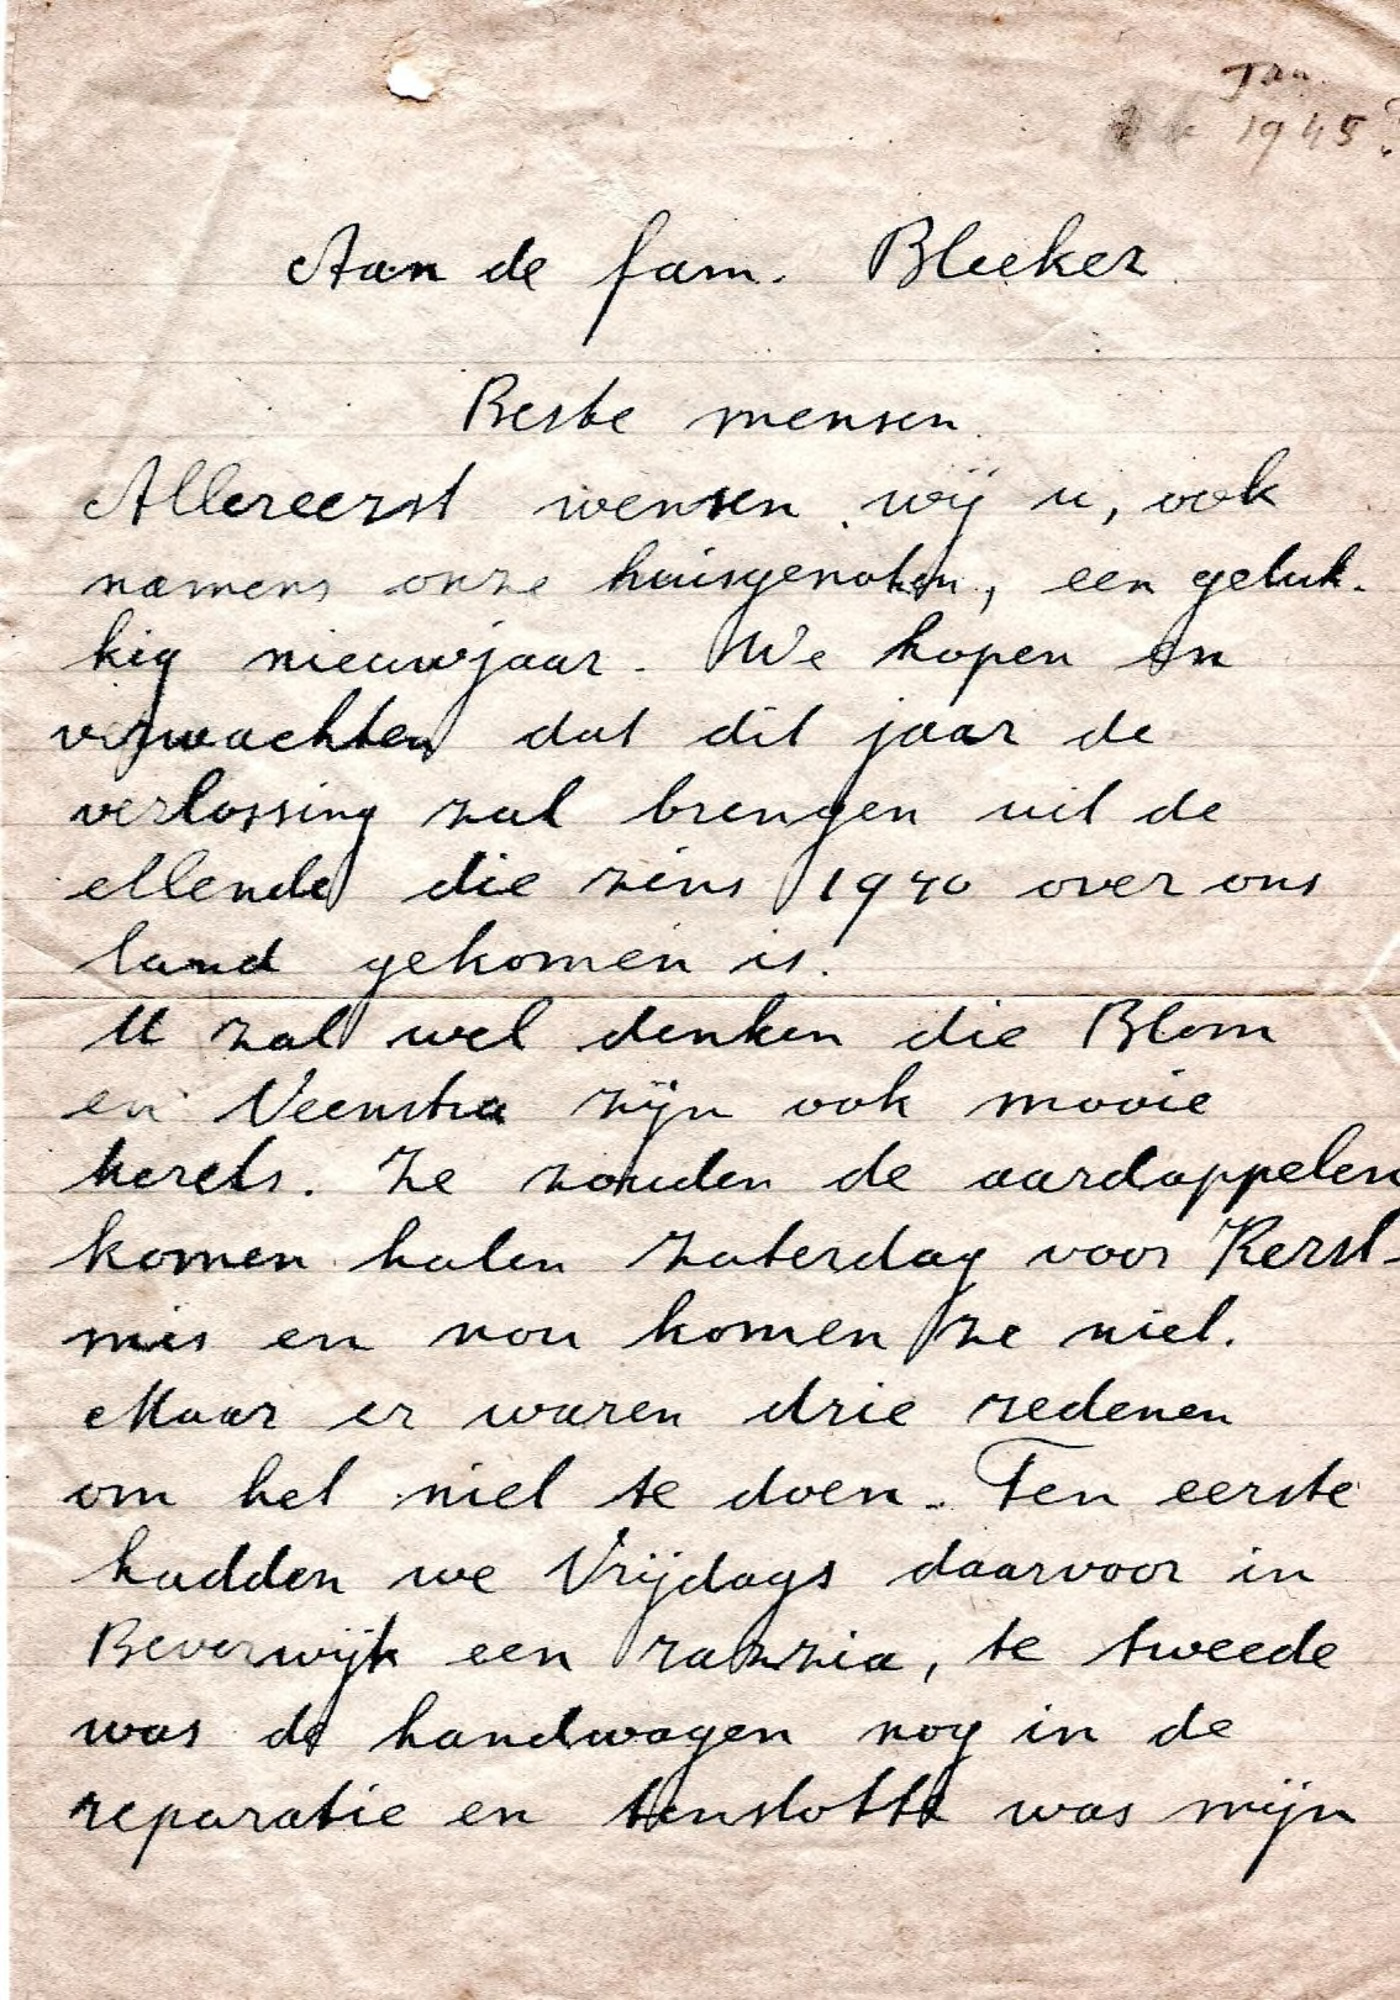 Jan.
1945?
Aan de fam. Bleeker.
Beste mensen.
Allereerst wensen wij u, ook
namens onze huisgenoten, een geluk-
kig nieuwjaar. We hopen en
verwachten dat dit jaar de
verlossing zal brengen uit de
ellende die sins 1940 over ons
land gekomen is.
U zal wel denken die Blom
en Veenstra zijn ook mooie
kerels. Ze zouden de aardappelen
komen halen zaterdag voor Kerst-
mis en nou komen ze niet.
Maar er waren drie redenen
om het niet te doen. Ten eerste
hadden we Vrijdags daarvoor in
Beverwijk een razzia, te tweede
was de handwagen nog in de
reparatie en tenslotte was mijn